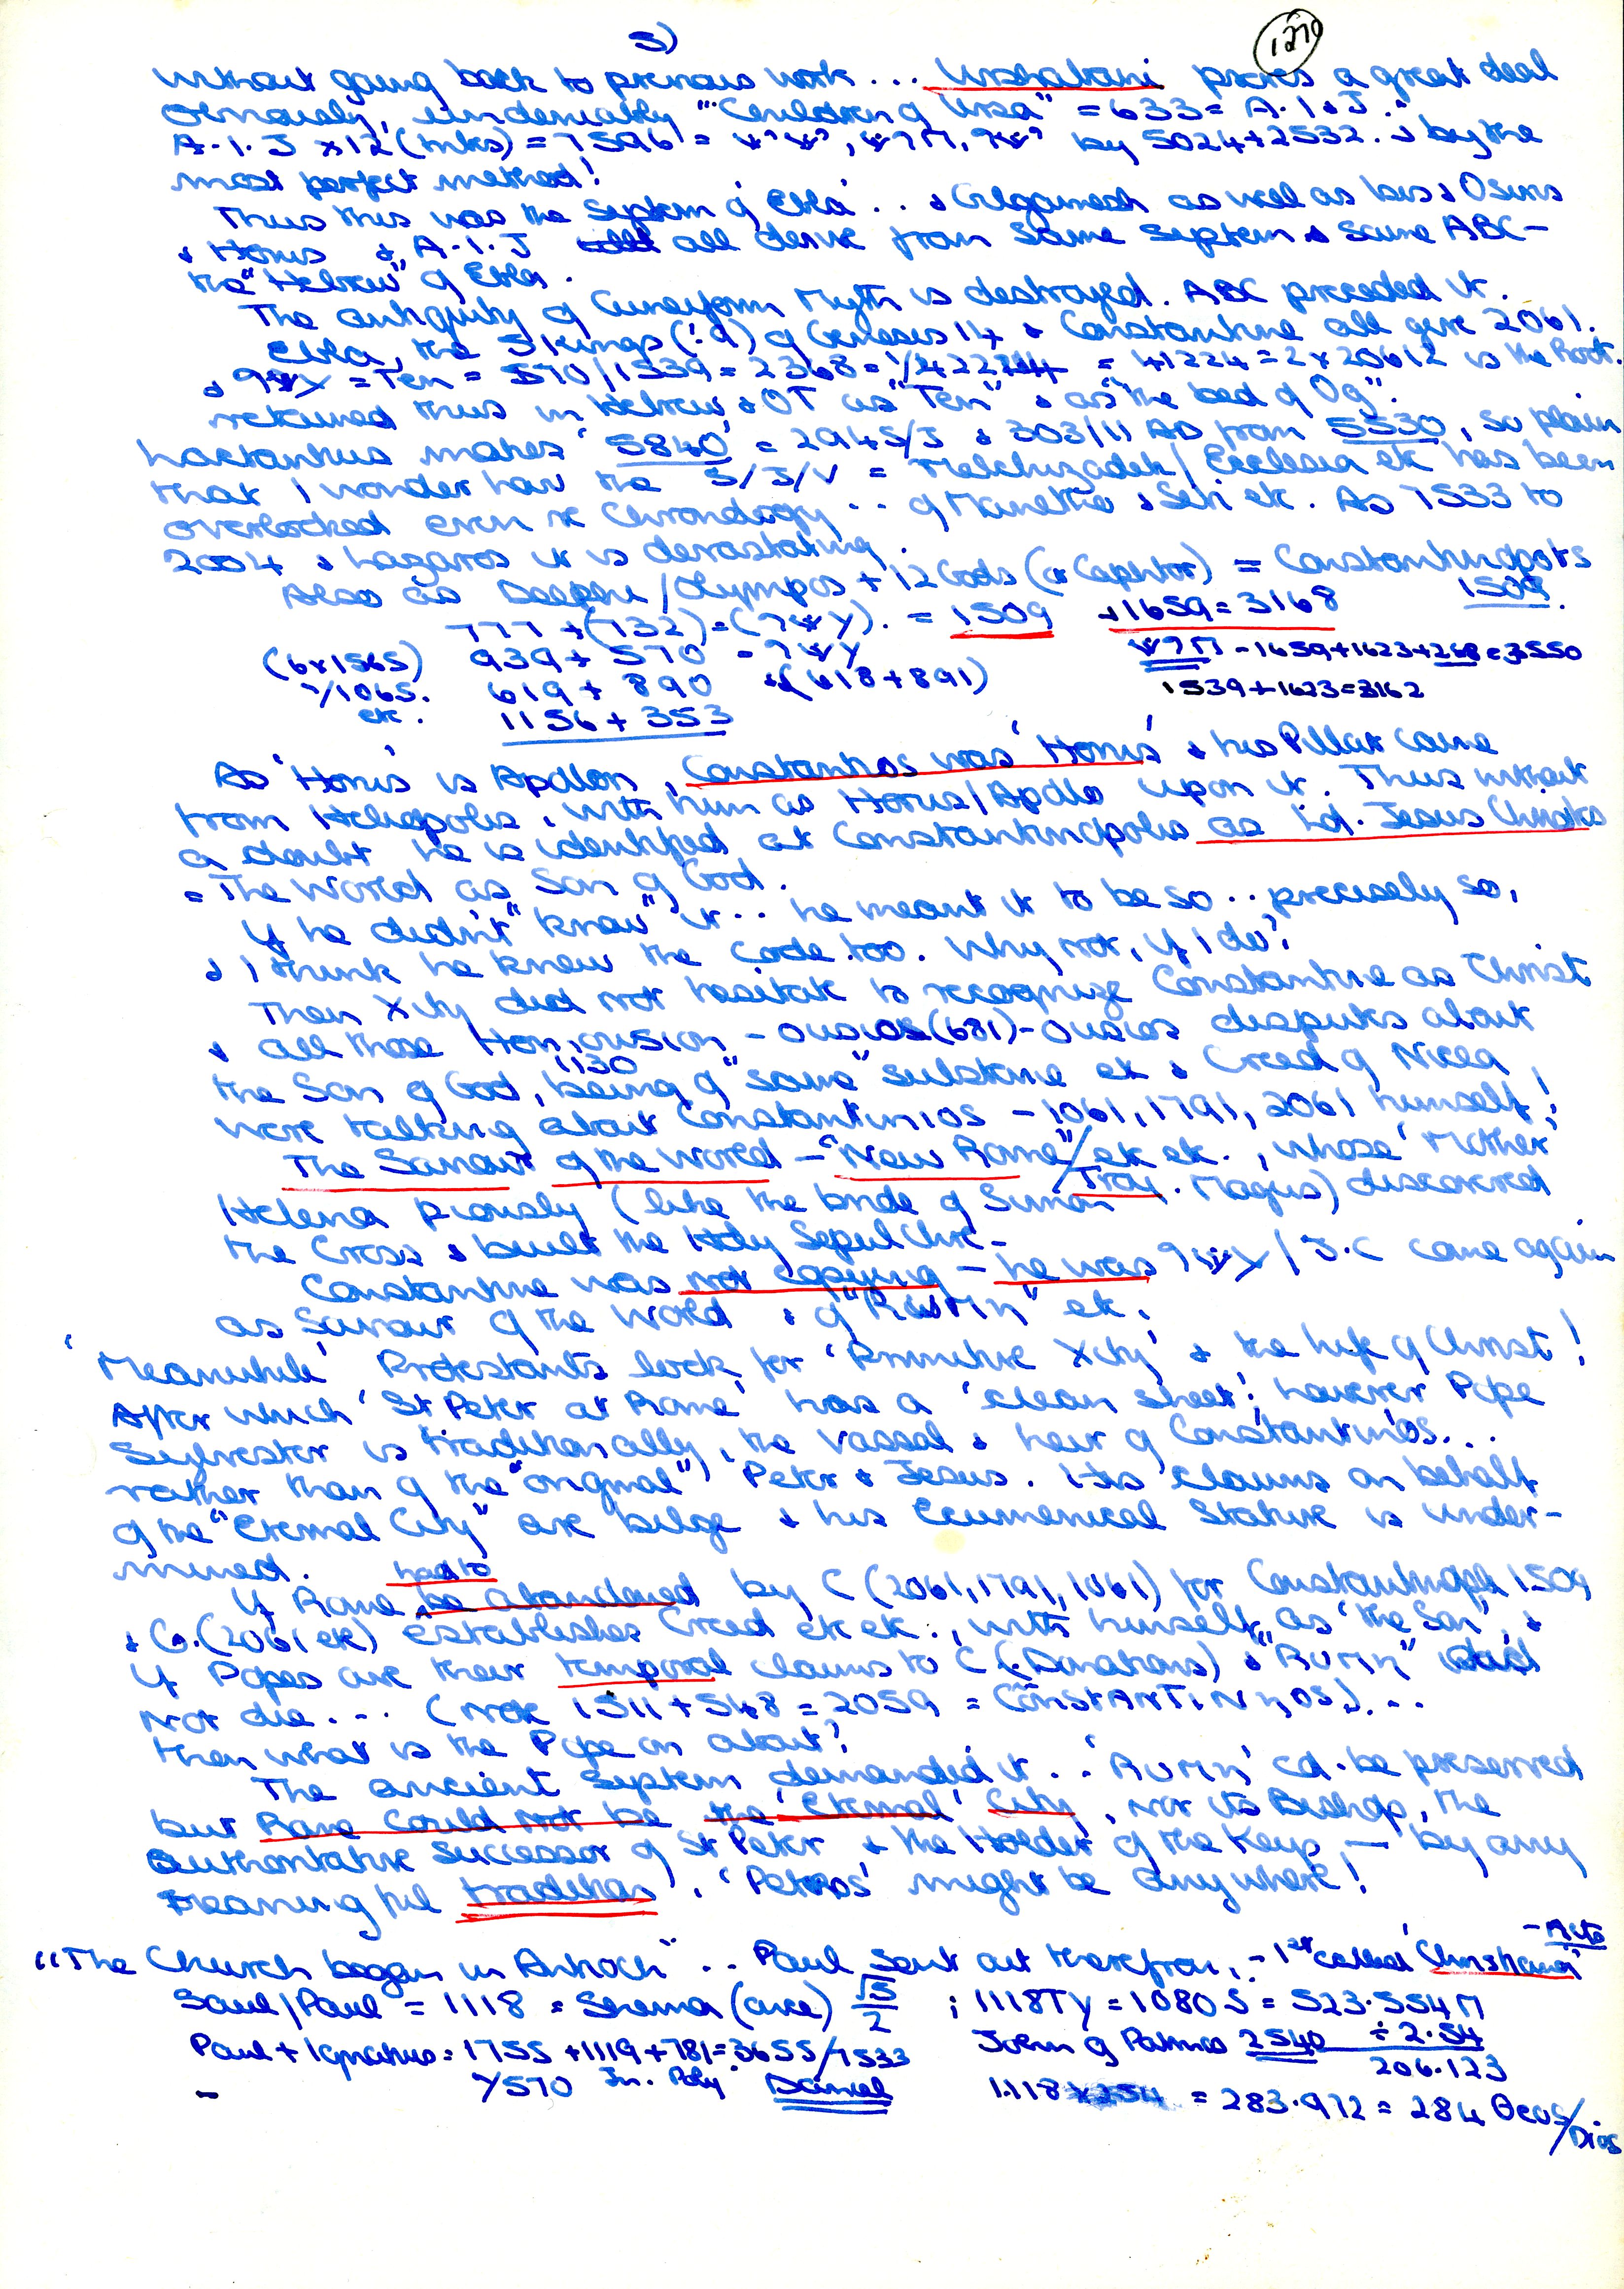 3)
1270
without going back to previous work ... Urshalami proves a great deal
Obviously, undeniably "'Children of Ursa" = 633 = A.I.J.
A.I.J x12 (tribes) = 7596 = by 5024+2532. by the
most perfect method!
Thus this was the System of Ebla .. & Gilgamesh as well as Isis & Osiris
& Horus & A.I.J all derive from same system & same ABC-
the "Hebrew" of Ebla.
The antiquity of Cuneiform Myth is destroyed. ABC preceded it.
Ebla, the 5 kings (:9) of Genesis 14 & Constantine all give 2061.
= Ten = 570/1539 = 2368 = = 41224 = 2 x 20612 is the Root.
retained thus in Hebrew & OT as "Ten" & as "the bed of Og".
Lactantius makes '5840' = 294 S/J & 303/11 AD from 5530, so plain
that I wonder how the S/J/V = Melchizadek/Ecclesia etc has been
overlooked even re Chronology .. of Manetho & Seti etc. As 7533 to
2004 & Lazaros it is devastating.
Also as Delphi/Olympos + 12 Gods (or Caphtor) = Constantinopolis
1509.
777 + (732) = (?ΨY). = 1509 +1659 = 3168
(6x1565) 939 + 570 = ?ΨY - 1659+1623+268 = 3550
7/1065. 619 + 890 & (618+891) 1539+1623=3162
etc. 1156 + 353
As 'Horus' is Apollon, Constantinos was 'Horus' & his Pillar came
from Heliopolis, with him as Horus/Apollo upon it. Thus without
a doubt he is identified at Constantinopolis as Ld. Jesus Christos
= The World as Son of God.
If he didn't "know" it .. he meant it to be so .. precisely so,
& I think he knew the Code too. Why not, if I do?
Then Xity did not hesitate to recognize Constantine as Christ
& all those Homoousion - ousios (681) - ousios disputes about
1130
the Son of God, being of "same" substance etc & Creed of Nicea
were talking about Constantinios - 1061, 1791, 2061 himself!
The Saviour of the World - "New Rome"/ etc etc., whose 'Mother'
Troy.
Helena piously (like the bride of Simon Magus) discovered
the Cross & built the Holy Sepulchre -
Constantine was not copying - he was ?ΨY / J.C come again
as Saviour of the World & of "Rumn" etc.
'Meanwhile' Protestants look for 'Primitive Xity' & the life of Christ!
After which 'St Peter at Rome' has a 'clean sheet'; however Pope
Sylvester is traditionally, the vassal & heir of Constantinos...
rather than of the "original" Peter & Jesus. His claims on behalf
of the "Eternal City" are bilge & his Ecumenical Stature is under-
mined.
had to
If Rome be abandoned by C (2061, 1791, 1061) for Constantinople 1509
& C. (2061 etc) establishes Creed etc etc., with himself as 'the Son', &
if Popes owe their temporal claims to C (Donations) & "Rumn" did
not die ... (note 1511 + 548 = 2059 = CONSTANTINnOS)...
then what is the Pope on about?
The ancient System demanded it .. 'Rumn' cd. be preserved
but Rome could not be the 'Eternal' City, nor its Bishop, the
authoritative successor of St Peter & the Holder of the Keys - by any
meaningful tradition. 'Petros' might be anywhere!
- Acts
"The Church began in Antioch" .. Paul sent out therefrom, - 1st called 'Christians'
Saul/Paul = 1118 = Shema (one) √5/2 ; 1118TY = 1080S = 523.554M
Paul + Ignatius = 1755 + 1119 + 781 = 3655/7533 John of Patmos 2540 ÷ 2.54
7/570 Jn. Poly Daniel 206.123
1.118 x 254 = 283.972 = 284 Θeos/
Dios